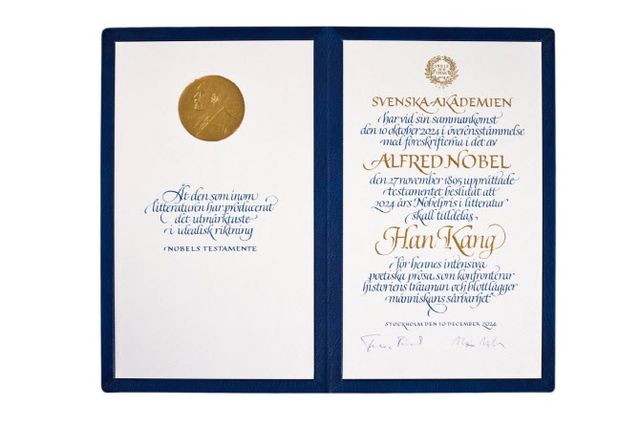 Åt den som inom
litteraturen har producerat
det utmärktaste
i idealisk riktning
NOBELS TESTAMENTE
SVENSKA AKADEMIEN
har vid sin sammankomst
den 10 oktober 2024 i överensstämmelse
med föreskrifterna i det av
ALFRED NOBEL
den 27 november 1895 upprättade
testamentet beslutat att
2024 års Nobelpris i litteratur
skall tilldelas
Han Kang
"för hennes intensiva
poetiska prosa som konfronterar
historiens trauman och blottlägger
människans sårbarhet"
STOCKHOLM DEN 10 DECEMBER 2024